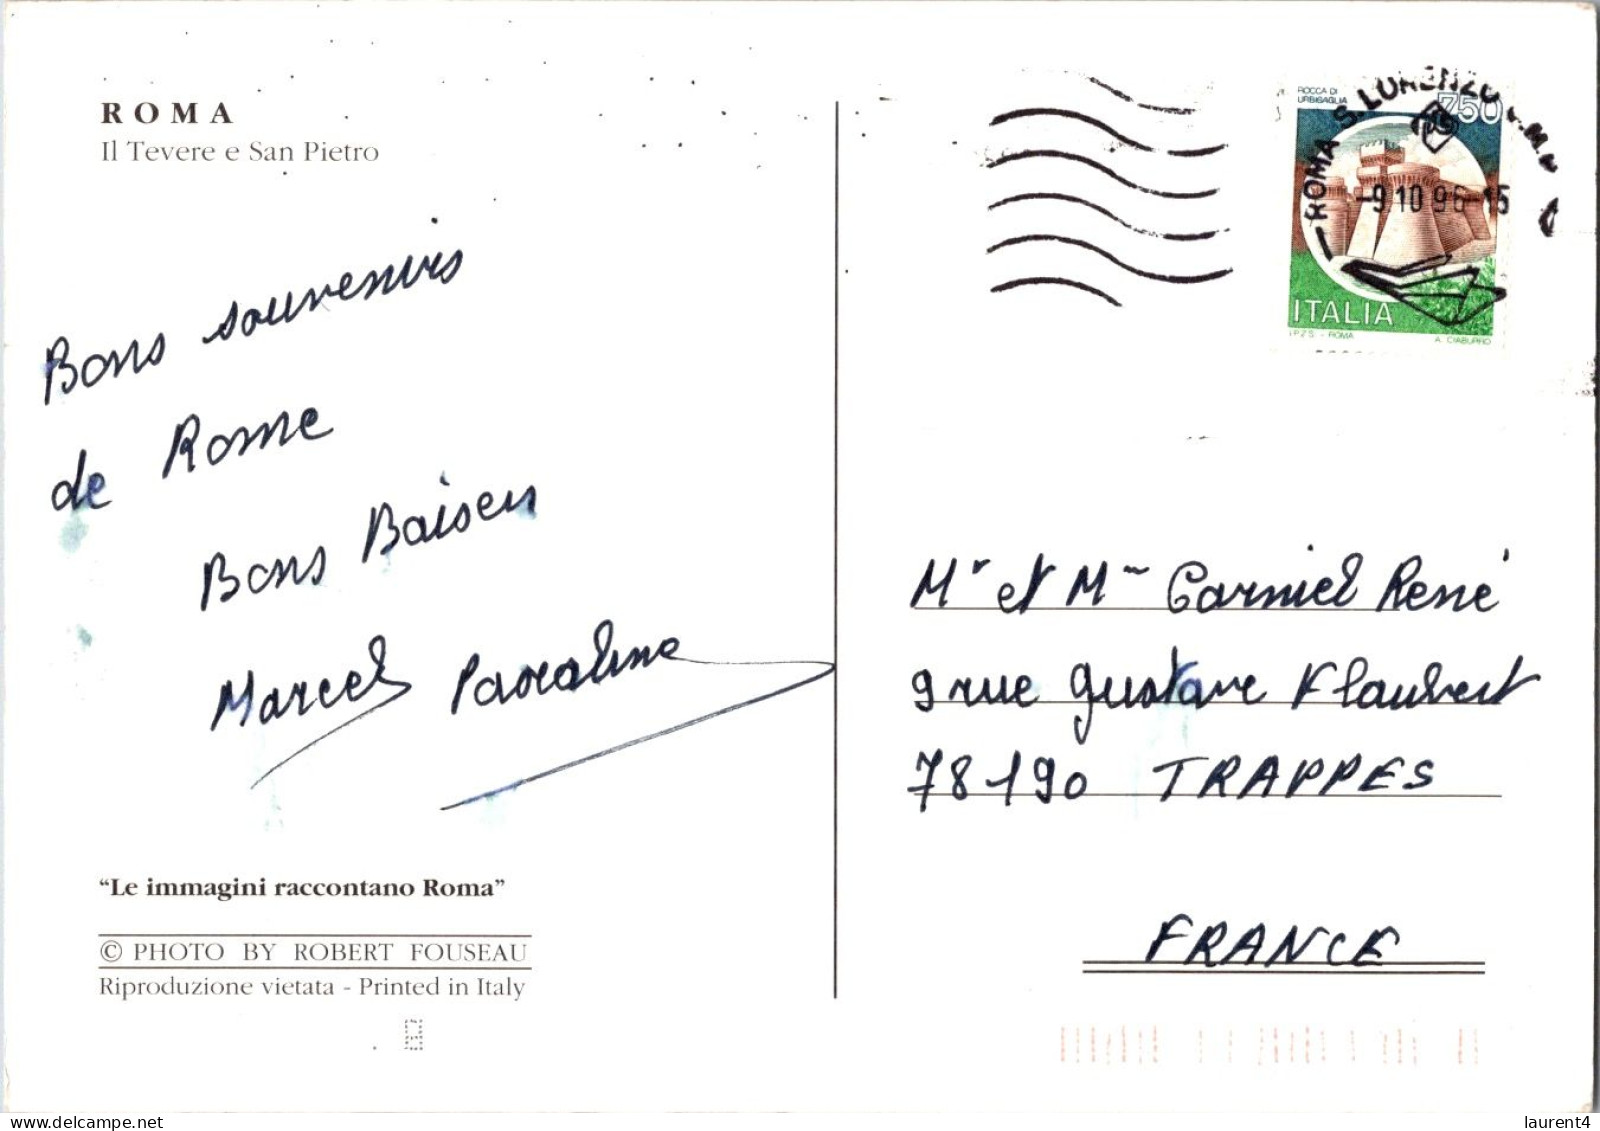 ROMA
Il Tevere e San Pietro
Bons souvenirs
de Rome
Bons Baisers
Marcel Pascaline
"Le immagini raccontano Roma"
© PHOTO BY ROBERT FOUSEAU
Riproduzione vietata - Printed in Italy
ROCCA DI
URBISAGLIA
750
ROMA S. LORENZO
-9.10.96-15
ITALIA
I.P.Z.S. - ROMA
A. CIABURRO
Mr et Mme Carniel René
9 rue Gustave Flaubert
78190 TRAPPES
FRANCE
laurent4